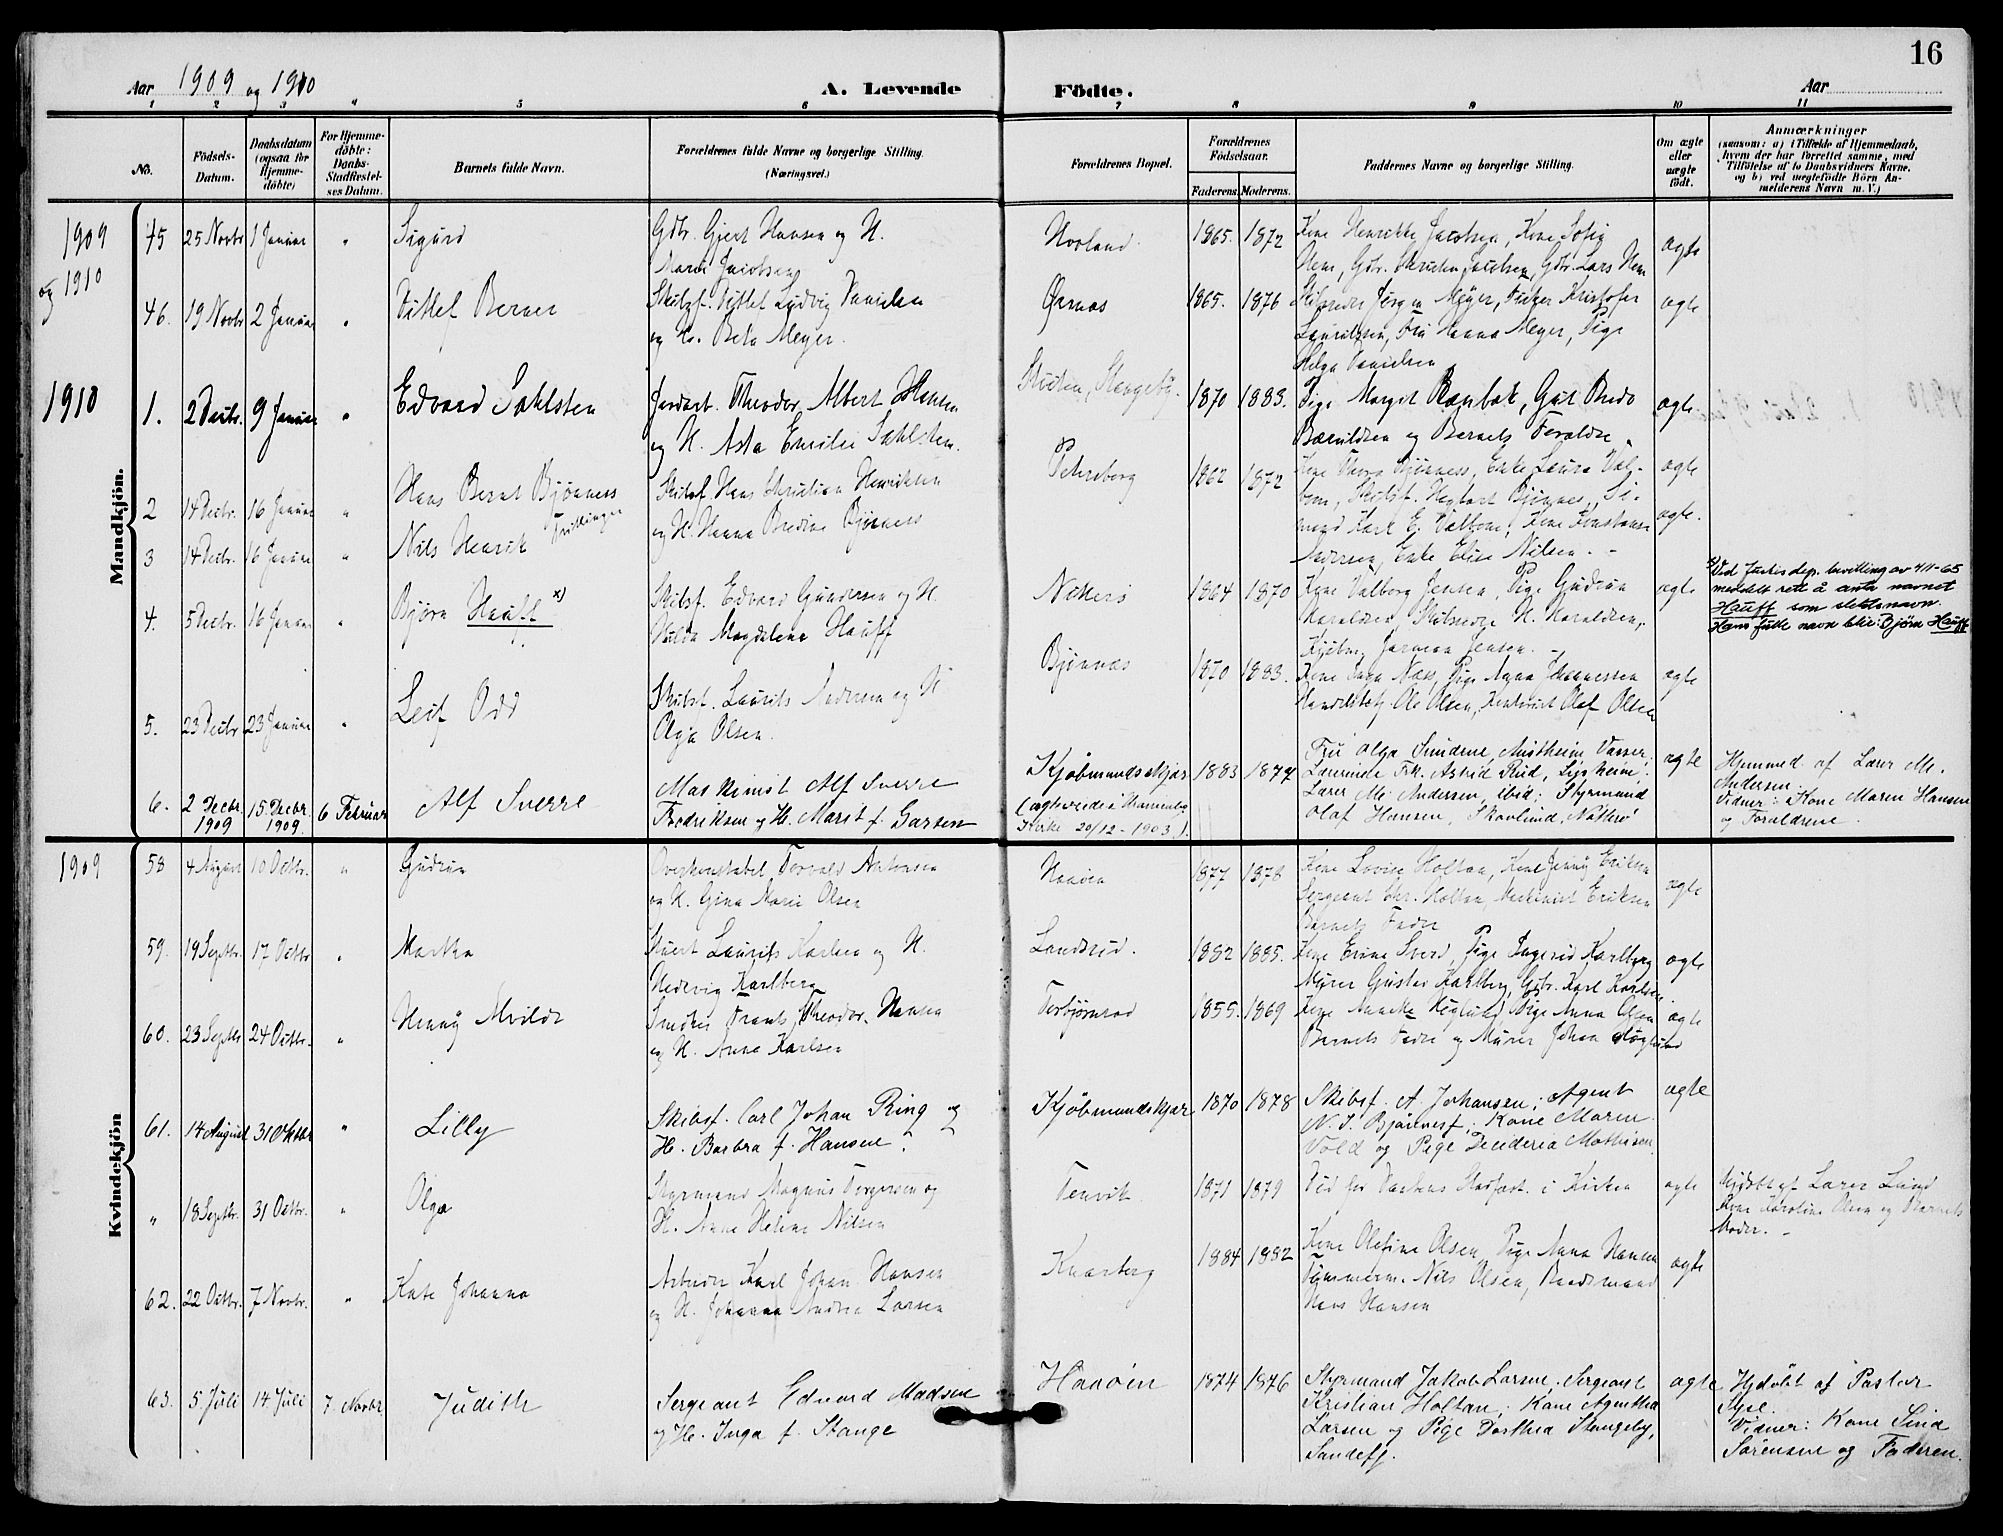 16
Aar 1909 og 1910
A. Levende Födte.
Aar
1 2 3 4 5 6 7 8 9 10 11
No.
Födsels-Datum.
Daabsdatum (ogsaa for Hjemme-döbte)
For Hjemme-döbte: Daabs-Stadfæstel-ses Datum.
Barnets fulde Navn.
Forældrenes fulde Navne og borgerlige Stilling. (Næringsvei.)
Forældrenes Bopæl.
Forældrenes Födselsaar.
Faderens. Moderens.
Faddernes Navne og borgerlige Stilling.
Om ægte eller uægte födt.
Anmærkninger
(saasom: a) i Tilfælde af Hjemmedaab, hvem der har forrettet samme, med Tilföielse af to Daabsvidners Navne, og b) ved uægtefödte Börn An-melderens Navn m. V.)
Mandkjön.
1909 og 1910
45 25 Novbr 1 Januar " Sigurd
Gdbr. Gjert Hansen og H.
Marie Jacobsen
1865. 1872
Kone Henrikke Jacobsen, Kone Sofie
Hem, Gdbr. Kristen Jacobsen, Gdbr. Lars Hem
ægte
46. 19 Novbr 2 Januar " Ditlef Berner
Skibsf. Ditlef Ludvig Danielsen
og H. Beta Meyer.
Ørsnes
1865. 1876
Skibsreder Jørgen Meyer, Kristofer
Lauritzen, Fru Hanna Meyer, Pige
Helga Danielsen
ægte
1910
1. 2 Decbr. 9 Januar " Edvard Sahlsten
Jordarb. Theodor Albert Hansen
og H. Asta Emilie Sahlsten.
1870 1883.
Pige Margit Rambæk, Gut Bredo
og Barnets Forældre.
ægte
2 14 Decbr. 16 Januar " Hans Bernt Bjønness
3 14 Decbr. 16 Januar " Nils Henrik
Tvillinger
Skibsf. Hans Christian Henriksen
og H. Hanna Bredine Bjønness
Petersborg
1862 1872
Kone Thora Bjønness, Enke Laura Val-
bom, Skibsf. Bjønnes,
Karl E. Valbom, Kone Konstanse
Andersen, Enke Elise Nilsen. -
ægte
ægte.
4. 5 Decbr. 16 Januar " Bjørn Hauff x)
Skibsf. Edvard Gundersen og H.
Hulda Magdalena Hauff
1864 1870
Kone Valborg Jensen, Pige Gudrun
Haraldsen, Skibsredr H. Haraldsen,
Kjøbm. Herman Jensen. -
ægte
x) Ved Justis dep. bevilling av 4/11-65
meddelt rett å anta navnet
Hauff som slektsnavn.
Hans fulle navn blir: Bjørn Hauff
5. 23 Decbr 23 Januar " Leif Odd
Skibsf. Laurits Andersen og H
Olga Olsen.
Bjønnes
1870 1883.
Kone Inga Næss, Pige Anna Johannessen
Handelsbetj. Ole Olsen, Kontorist Olaf Olsen
ægte
6. 2 Decbr. 1909 15. Decbr. 1909 6 Februar Alf Sverre
Maskinist Alf Sverre
Fredriksen og H. Marit f. Garsen
Kjøbmandsskjær
(ægteviede i
Kirke 20/12 - 1903).
1883 1877
Fru Olga Smidene, Vasser;
Lærerinde Frk. Astrid Rud,
Lærer M. Andersen, ibid; Styrmand
Olaf Hansen, Skovlund, Nøtterø
ægte
Hjemmed. af Lærer M.
Andersen.
Vidner: Kone Maren Hansen
og Forældrene.
Kvindekjön
1909
58 4 August 10 Octbr. " Gudrun
Overkonstabel Torvald Antonsen
og H. Gina Marie Olsen
Haaöen
1877 1878
Kone Lovise Holtan, Kone Jenny Eriksen
Sergeant Chr. Holtan, Maskinist Eriksen
Barnets Fader
ægte
59. 19 Septbr. 17 Octbr " Martha
Stuert Laurits Karlsen og H.
Hedevig Karlberg
Landsrud.
1882 1885.
Kone Sverd, Pige Ingerid Karlberg
Murer Gustav Karlberg, Gdbr. Karl Karlsen.
ægte
60. 23 Septbr 24 Octbr. " Henny Alvilde
Smeder Frants Theodor Hansen
og H. Anna Karlsen
Torbjørnrød
1855. 1869
Kone Høglund, Pige Anna Olsen
Barnets Fader og Murer Johan Høglund
ægte
61. 14 August 31 Oktbr " Lilly
Skibsf. Carl Johan Ring og
H. Barbra f. Hansen.
Kjøbmandskjær
1870 1878
Skibsf. A. Johansen; Agent
N. J. Bjønnes; Kone Maren
Vold og Pige Decideria Mathisen.
ægte
" 18 Septbr. 31 Octbr. " Olga
Styrmand Magnus Torgersen og
H. Anne Helene Nilsen
Tenvik
1871 1879
Stadfæst. i Kirken
ægte
Hjdøbt af Lærer Lund
Kone Karoline Olsen og Barnets
Moder. -
62. 22 Octbr. 7 Novbr. " Kate Johanna
Arbeider Karl Johan Hansen
og H. Johanna Andrea Larsen
Knarberg
1884 1882
Kone Oletine Olsen, Pige Anna Hansen
Tømmerm. Nils Olsen, Baadsmand
Hans Hansen
ægte
63. 5 Juli 14 Juli 7 Novbr Judith
Sergeant Edvard Madsen
og H. Inga f. Stange
Haaöen
1874 1876
Styrmand Jakob Larsen; Sergeant
Kristian Holtan; Kone Agenthea
Larsen og Pige Dorthea Stangeby,
Sandefj.
ægte
Hjdöbt af Pastor
Vidner: Kone Sina
Sörensen og Faderen.